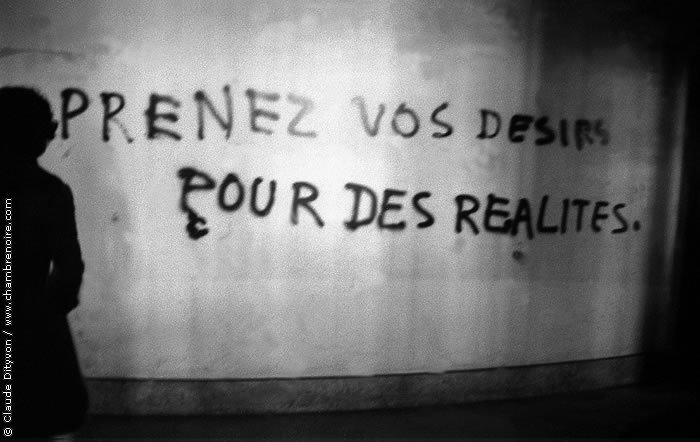 PRENEZ VOS DESIRS
POUR DES REALITES.
© Claude Dityvon / www.chambrenoire.com